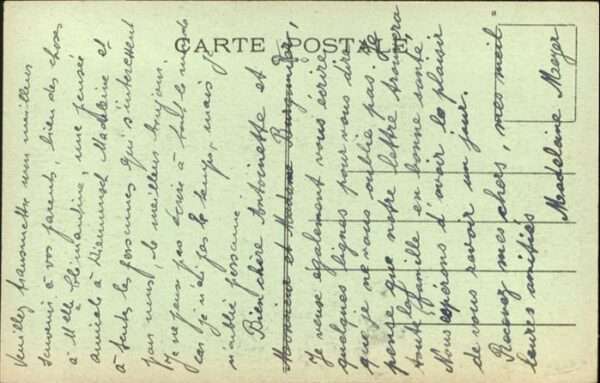 CARTE POSTALE
Bien chère Antoinette et
Monsieur et Madame
Je veux également vous écrire
quelques lignes pour vous dire
que je ne vous oublie pas. Je
pense que notre lettre trouvera
toute la famille en bonne santé
Nous espérons d'avoir le plaisir
de vous revoir un jour.
Recevez mes chers, mes meil
leures amitiés
Madelane Meyer
Veuillez transmettre mes meilleurs
souvenirs à vos parents, bien des choses
à Mlle Clémantine, une pensée
amicale à Madeleine et
à toutes les personnes qui s'intéressent
pour nous, le meilleur bonjour.
Je ne peux pas écrire à tout le monde
car je n'ai pas le temps, mais je
n'oublie personne